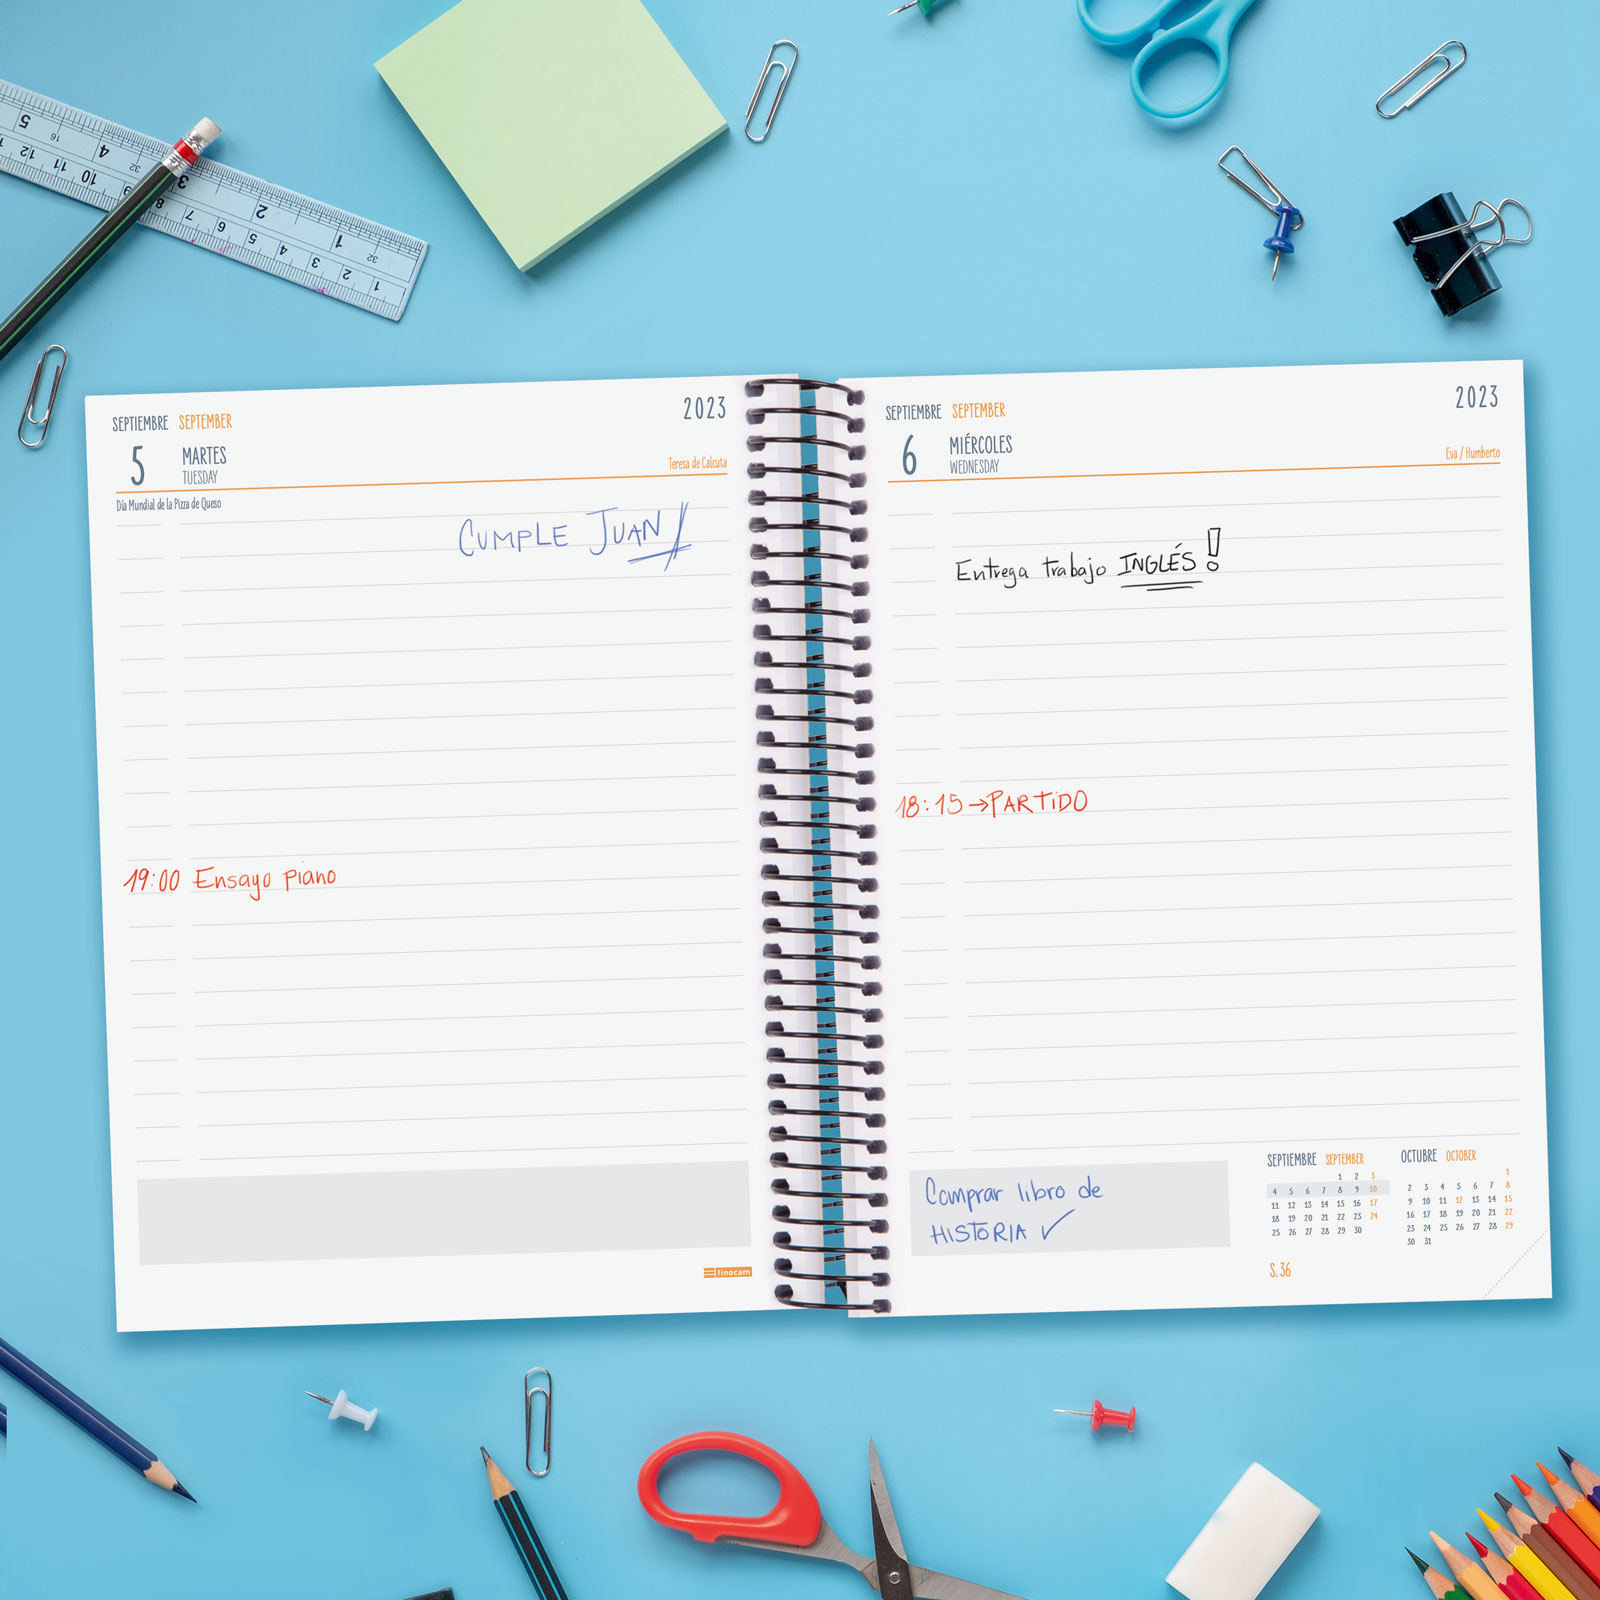 SEPTIEMBRE SEPTEMBER 2023
5 MARTES
TUESDAY
Teresa de Calcuta
Día Mundial de la Pizza de Queso
CUMPLE JUAN
19:00 Ensayo piano
finocam
SEPTIEMBRE SEPTEMBER 2023
6 MIÉRCOLES
WEDNESDAY
Eva / Humberto
Entrega trabajo INGLÉS!
18:15→PARTIDO
Comprar libro de
HISTORIA ✓
SEPTIEMBRE SEPTEMBER
1 2 3
4 5 6 7 8 9 10
11 12 13 14 15 16 17
18 19 20 21 22 23 24
25 26 27 28 29 30
OCTUBRE OCTOBER
1
2 3 4 5 6 7 8
9 10 11 12 13 14 15
16 17 18 19 20 21 22
23 24 25 26 27 28 29
30 31
S. 36
5 4 3 2 1
12 11 10 9 8 7 6 5 4 3 2 1